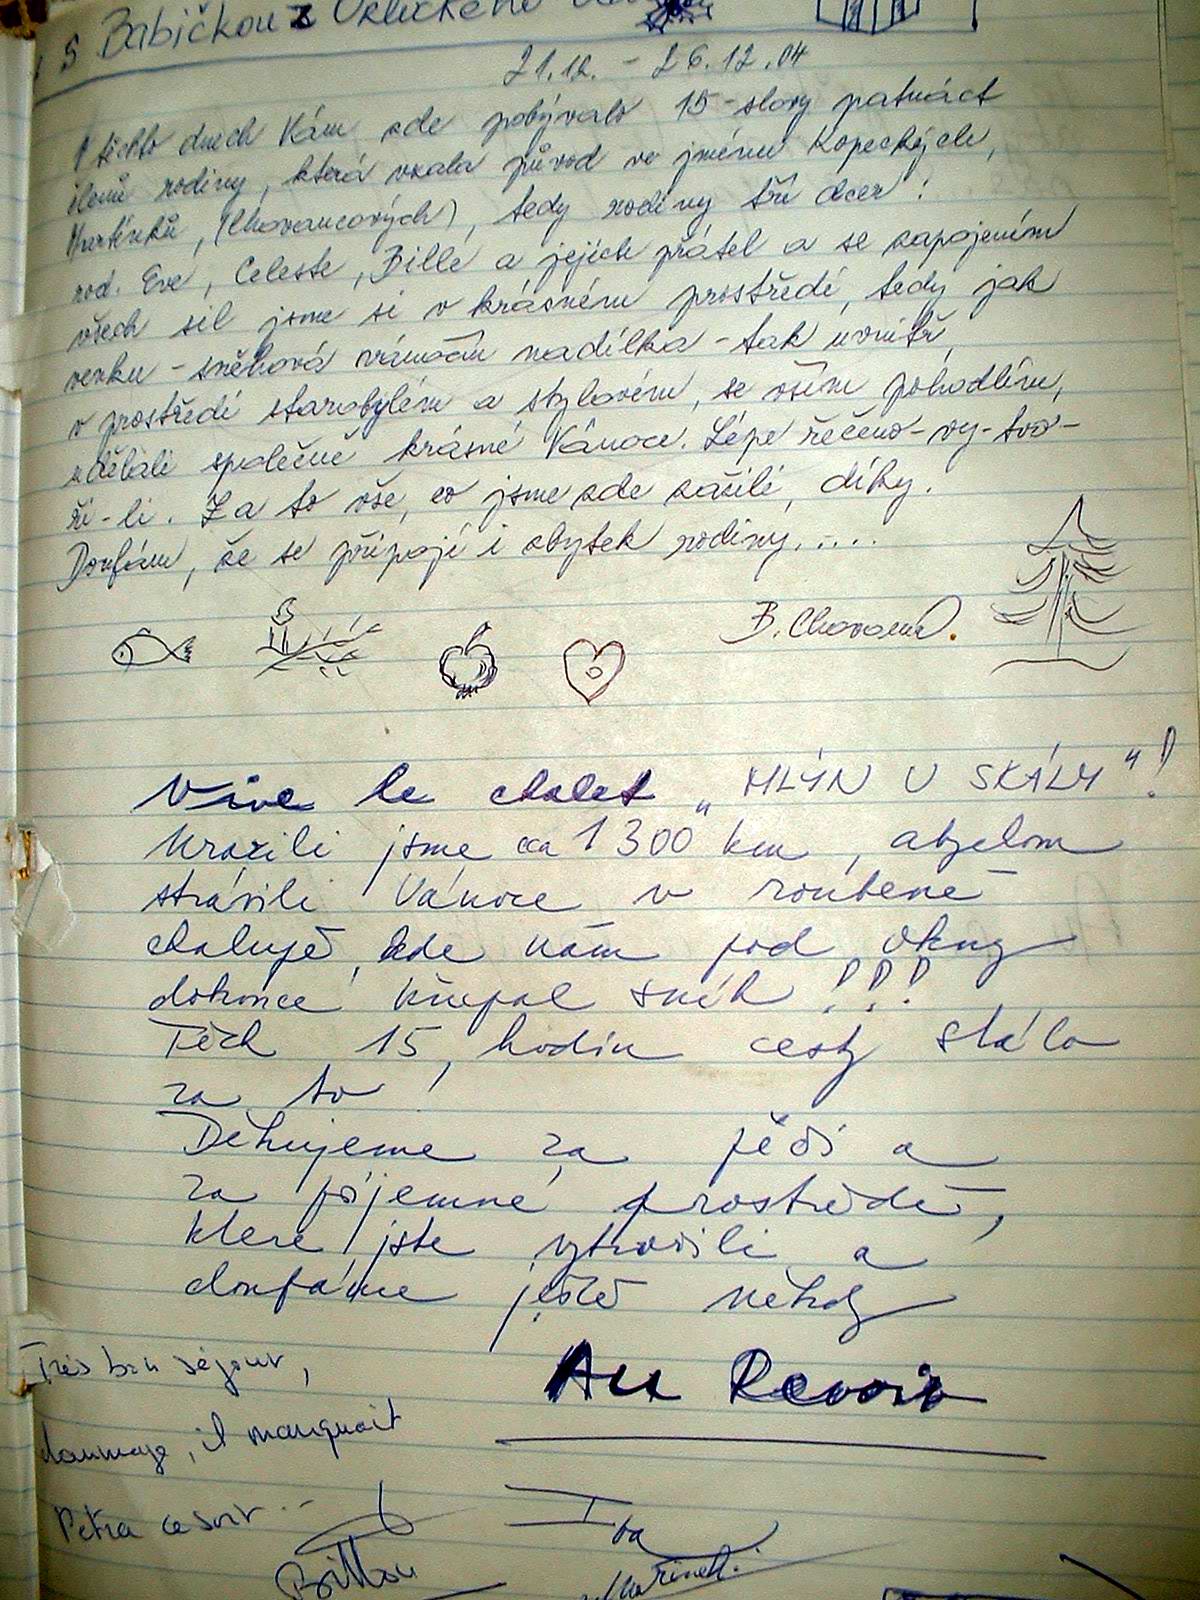 S Babičkou z Orlického
21.12. - 26.12.04
V těchto dnech Vám zde pobývalo 15-slovy patnáct
členů rodiny, která vzala původ ve jménu Kopeckých,
Martínků, (Chovancových), tedy rodiny tří dcer:
rod. Evy, Celeste, Billé a jejich přátel a se zapojením
všech sil jsme si v krásném prostředí, tedy jak
venku - sněhová vánoční nadílka - tak uvnitř,
v prostředí starobylém a stylovém, se vším pohodlím,
udělali společně krásné Vánoce. Lépe řečeno - vy-tvo-
ři-li. Za to vše, co jsme zde zažili, díky.
Doufám, že se připojí i zbytek rodiny.....
B. Chovanc.
Vive le chalet „MLÝN U SKÁLY"!
Urazili jsme cca 1300 km, abychom
strávili Vánoce v roubené
chalupě, kde nám pod okny
dokonce křupal sníh!!!
Těch 15 hodin cesty stálo
za to!
Děkujeme za péči a
za příjemné prostředí,
které jste vytvořili a
doufáme ještě někdy
Au Revoir
Très bon séjour,
dommage, il manquait
Petra ce soir...
Iva